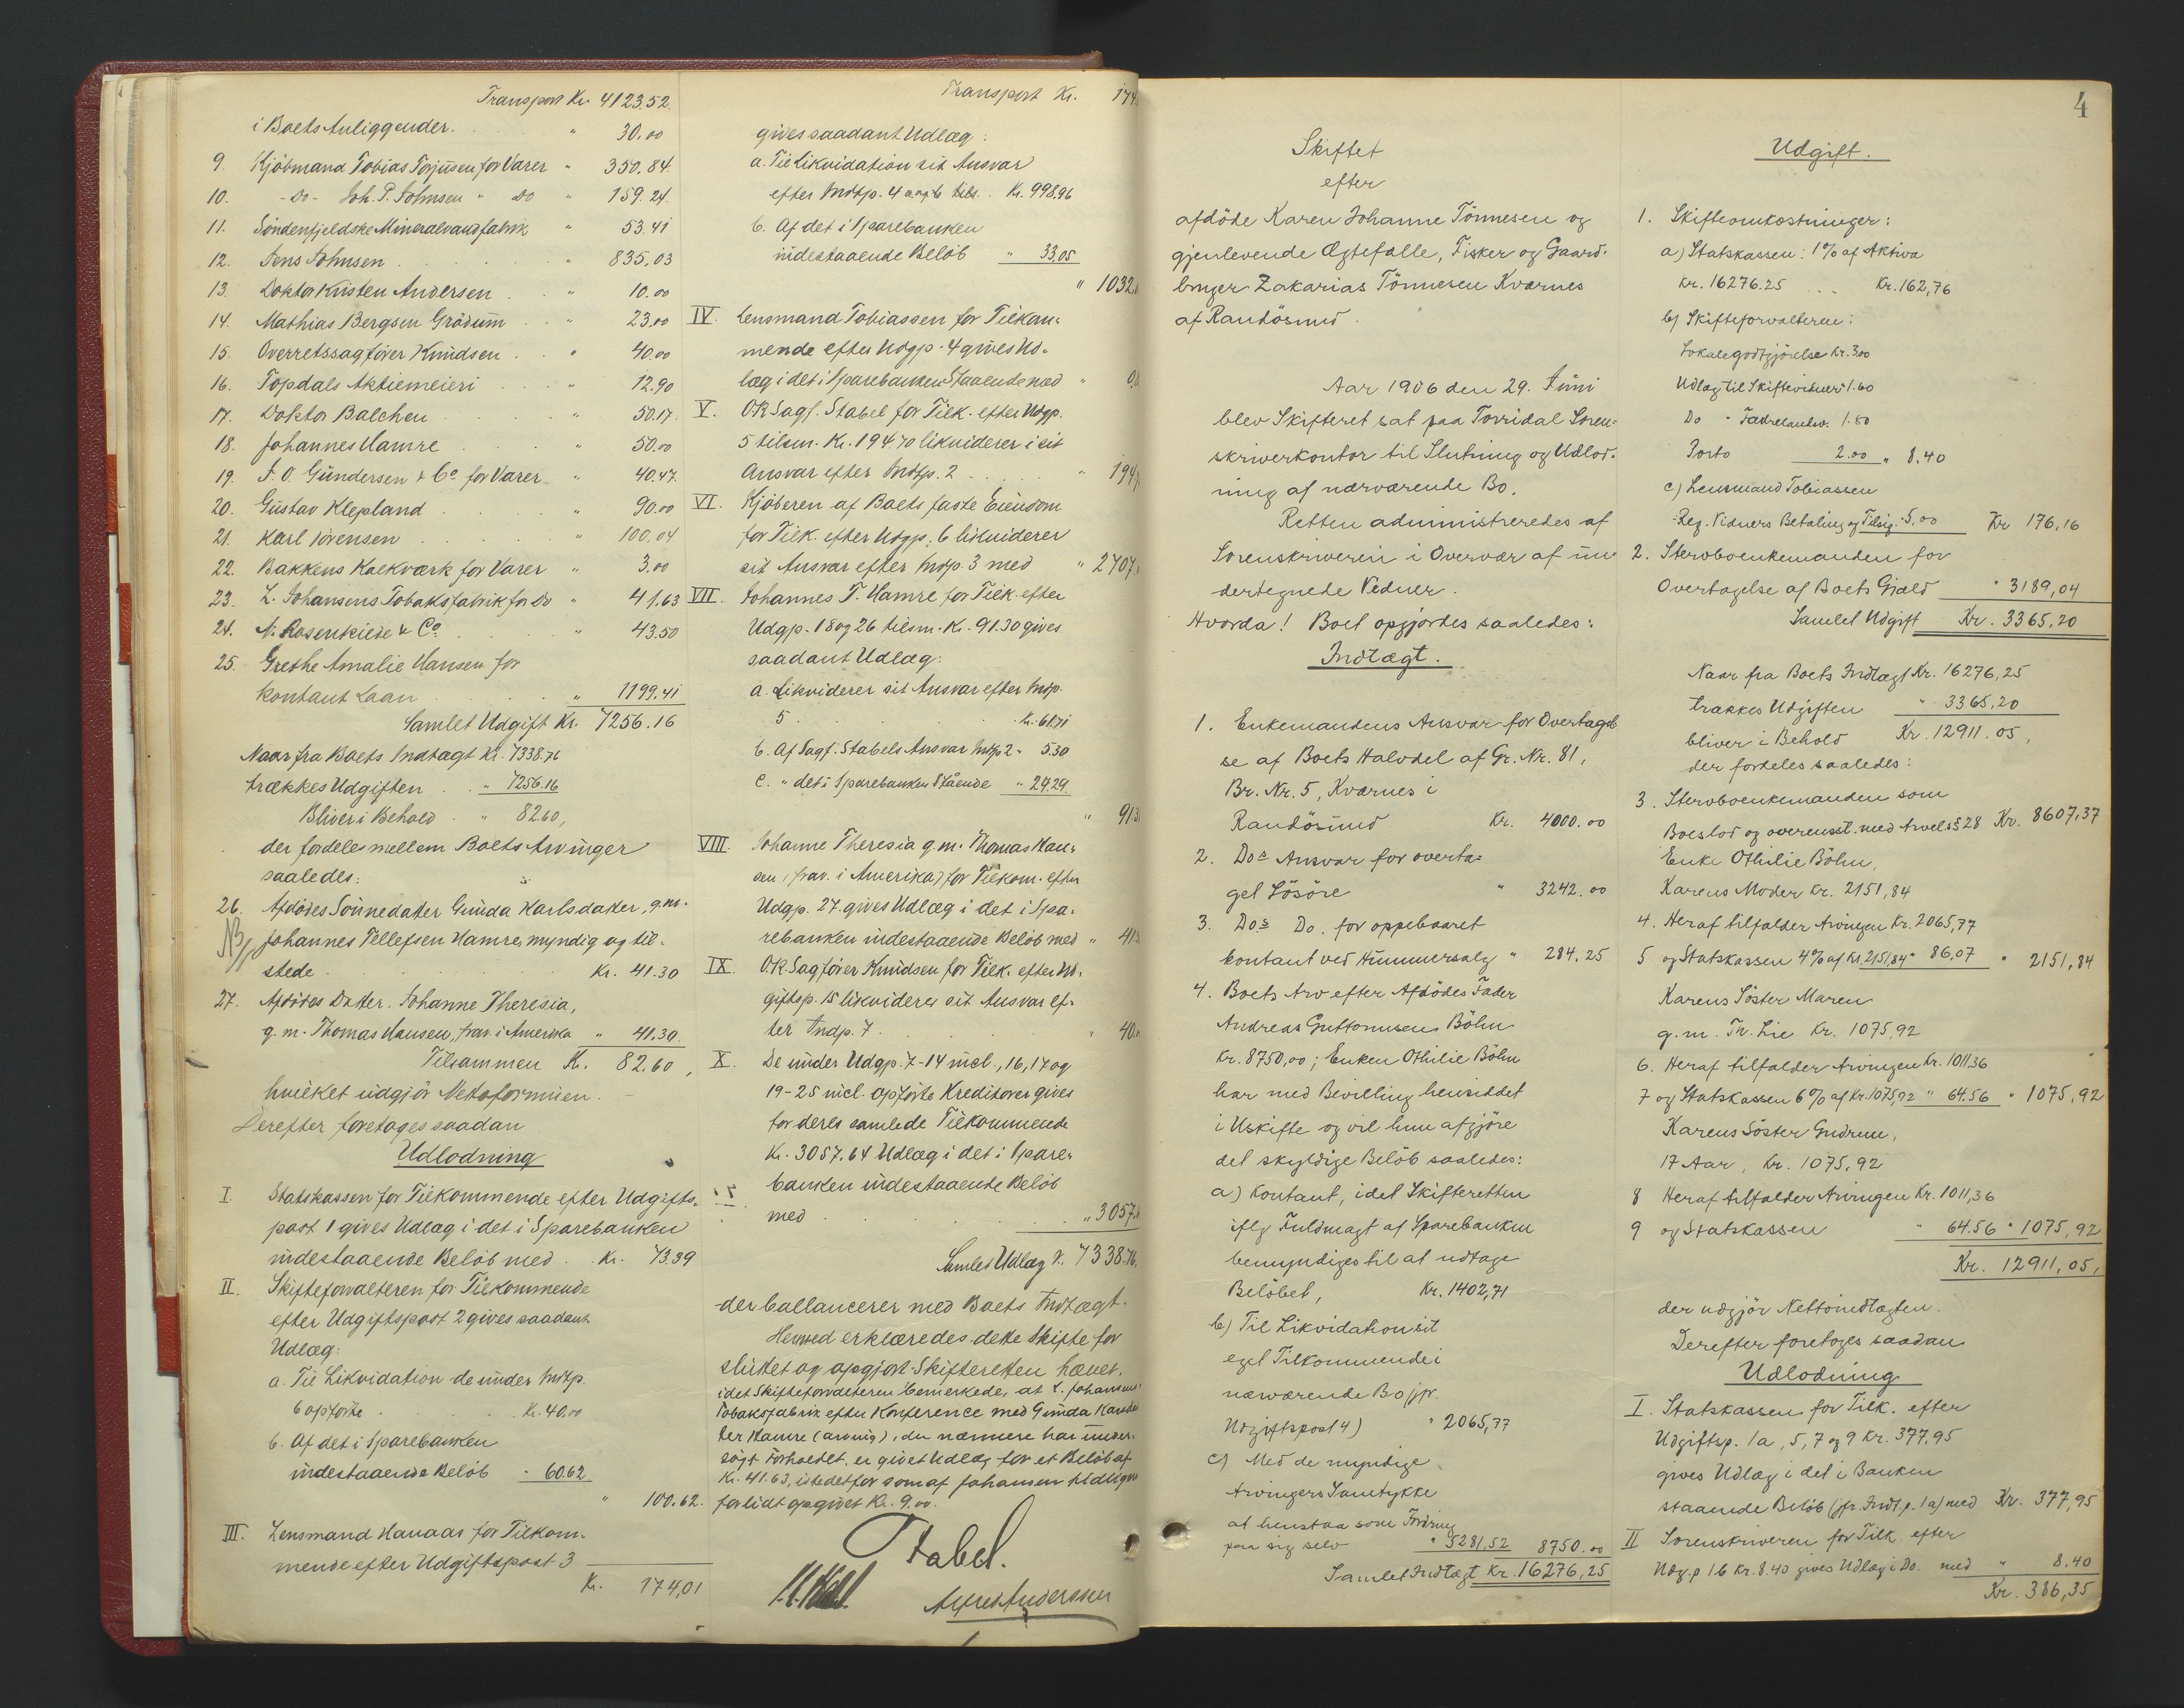 Transport Kr. 4123.52.
i Boets Anliggender. " 30.00
9. Kjöbmand Tobias Torjusen for Varer " 350.84.
10. -Do- Joh. P. Johnsen " Do " 159.24.
11. Söndenfjeldske Mineralvandfabrik " 53.41
12. Jens Johnsen " 835.03
13. Doktor Kristen Andersen " 10.00
14. Mathias Bergsen Grödum " 23.00
15. Overretssagförer Knudsen " 40.00
16. Topdals Aktiemeieri " 12.90
17. Doktor Balchen " 50.17
18. Johannes Hamre " 50.00
19. J. O. Gundersen & Co. for Varer " 40.47.
20. Gustav Klepland " 90.00
21. Karl Sörensen " 100.04
22. Bakkens Kalkværk for Varer " 3.00
23. L. Johansens Tobaksfabrik for Do " 41.63
24. N. Rosenkilde & Co. " 43.50
25. Grethe Amalie Hansen for
kontant Laan " 1199.41
Samlet Udgift Kr. 7256.16
Naar fra Boets Indtægt Kr. 7338.76
trækkes Udgiften " 7256.16
Bliver i Behold " 82.60,
der fordele mellem Boets Arvinger
saaledes:
26. Afdödes Sönnedatter Gunda Karlsdatter, g.m.
NB Johannes Tellefsen Hamre, myndig og til-
stede Kr. 41.30
27. Afdödes Datter. Johanne Theresia,
g.m. Thomas Hansen, frav. i Amerika " 41.30.
Tilsammen Kr. 82.60,
hvilket udgjör Nettoformuen.
Derefter foretages saadan
Udlodning
I. Statskassen for Tilkommende efter Udgifts-
post 1 gives Udlæg i det i Sparebanken
indestaaende Belöb med Kr. 73.39
II. Skifteforvalteren for Tilkommende
efter Udgiftspost 2 gives saadant
Udlæg:
a. Til Likvidation de under Indtp.
6 opförte Kr. 40.00
b. Af det i Sparebanken
indestaaende Belöb " 60.62
" 100.62.
III. Lensmand Hanaas for Tilkom-
mende efter Udgiftspost 3
Kr. 174,01
Transport Kr. 174.
gives saadant Udlæg:
a. Til Likvidation sit Ansvar
efter Indtp. 4 a og b tils. Kr. 998.96
b. Af det i Sparebanken
indestaaende Belöb " 33.05
" 1032.
IV. Lensmand Tobiassen for Tilkom-
mende efter Udgp. 4 gives Ud-
læg i det i Sparebanken Staaende med "
V. O.R.Sagf. Stabel for Tilk. efter Udgp.
5 tilsm. Kr. 194.70 likviderer i sit
Ansvar efter Indtp. 2 " 194.
VI. Kjöberen af Boets faste Eiendom
for Tilk. efter Udgp. 6 likviderer
sit Ansvar efter Indtp. 3 med " 2707.
VII. Johannes T. Hamre for Tilk. efter
Udgp. 18 og 26 tilsm. Kr. 91.30 gives
saadant Udlæg:
a. Likviderer sit Ansvar efter Indtp.
5 Kr. 61.71
b. Af Sagf. Stabels Ansvar Indtp 2 " 5.30
c. " det i Sparebanken Stående " 24.29
" 91.3
VIII. Johanne Theresia g.m. Thomas Han-
sen (frav. i Amerika) for Tilkom. efter
Udgp. 27. gives Udlæg i det i Spa-
rebanken indestaaende Belöb med " 41.3
IX. O.R.Sagförer Knudsen for Tilk. efter Ud-
giftsp. 15 likviderer sit Ansvar ef-
ter Indp. 7 " 40.
X. De under Udgp. 7-14 incl., 16, 17 og
19-25 incl. opförte Kreditorer gives
for deres samlede Tilkommende
Kr. 3057.64 Udlæg i det i Spare-
banken indestaaende Belöb
med " 3057.
Samlet Udlæg Kr. 7338.76.
der ballancerer med Boets Indtægt.
Hermed erklæredes dette Skifte for
sluttet og opgjort. Skifteretten hævet,
idet Skifteforvalteren bemerkede, at L. Johansens
Tobaksfabrik efter Konference med Gunda Karlsdat-
ter Hamre (arving), der nærmere har under-
sögt Forholdet, er givet Udlæg for et Belöb af
Kr. 41.63, istedetfor som af Johansen tidligere
for lidt opgivet Kr. 9.00.
Stabel.
Alfred Anderssen
4
Skiftet
efter
afdöde Karen Johanne Tönnesen og
gjenlevende Ægtefælle, Fisker og Gaard-
bruger Zakarias Tönnesen Kvarnes
af Randösund.
Aar 1906 den 29. Juni
blev Skifteret sat paa Torridal Soren-
skriverkontor til Slutning og Udlod-
ning af nærværende Bo.
Retten administreredes af
Sorenskriveren i Overvær af un-
dertegnede Vidner.
Hvorda! Boet opgjordes saaledes:
Indtægt.
1. Enkemandens Ansvar for Overtagel-
se af Boets Halvdel af Gr. Nr. 81,
Br. Nr. 5, Kvarnes i
Randösund Kr. 4000.00
2. Dos Ansvar for overta-
get Lösöre " 3242.00
3. Dos Do. for oppebaaret
kontant ved Hummersalg " 284.25
4. Boets Arv efter Afdödes Fader
Andreas Guttormsen Böhn
Kr. 8750,00; Enken Othilie Böhn
har med Bevilling hensiddet
i Uskifte og vil hun afgjöre
det skyldige Belöb saaledes:
a) Kontant, idet Skifteretten
iflg Fuldmagt af Sparebanken
bemyndiges til at udtage
Belöbet, Kr. 1402,71
b) Til Likvidation sit
eget Tilkommende i
nærværende Bo jfr.
Udgiftspost 4) " 2065,77
c) Med de myndige
Arvingers Samtykke
at henstaa som Fordring
paa sig selv " 5281,52 8750.00
Samlet Indtægt Kr. 16276,25
Udgift.
1. Skifteomkostninger:
a) Statskassen: 1% af Aktiva
Kr. 16276.25 Kr. 162,76
b) Skifteforvalteren:
Lokalegodtgjörelse Kr. 3.00
Udlæg til Skiftevidner " 1.60
Do " Fædrelandsv. 1.80
Porto 2.00 " 8.40
c) Lensmand Tobiassen
Reg. Vidners Betaling og Tilsig. " 5,00 Kr 176,16
2. Stervboenkemanden for
Overtagelse af Boets Gjæld " 3189,04
Samlet Udgift Kr. 3365,20
Naar fra Boets Indtægt Kr. 16276,25
trækkes Udgiften " 3365,20
bliver i Behold Kr. 12911.05,
der fordeles saaledes:
3. Stervboenkemanden som
Boeslod og overensst. med Arvel. § 28 Kr. 8607,37
Enke Othilie Böhn,
Karens Moder Kr. 2151,84
4. Heraf tilfalder Arvingen Kr. 2065,77
5 og Statskassen 4% af Kr. 2151,84 " 86,07 " 2151,84
Karens Söster Maren
g.m. Th. Lie Kr. 1075,92
6. Heraf tilfalder Arvingen Kr. 1011.36
7 og Statskassen 6% af Kr. 1075,92 " 64.56 " 1075,92
Karens Söster Gudrun,
17 Aar, Kr. 1075,92
8 Heraf tilfalder Arvingen Kr. 1011,36
9 og Statskassen " 64.56 " 1075,92
Kr. 12911,05,
der udgjör Nettoindtægten.
Derefter foretages saadan
Udlodning
I. Statskassen for Tilk. efter
Udgiftsp. 1a, 5, 7 og 9 Kr. 377,95
gives Udlæg i det i Banken
staaende Belöb (jfr. Indt. p. 1a) med Kr. 377,95
II Sorenskriveren for Tilk efter
Udg.p 1b Kr. 8.40 gives Udlæg i Do. med " 8.40
Kr. 386,35